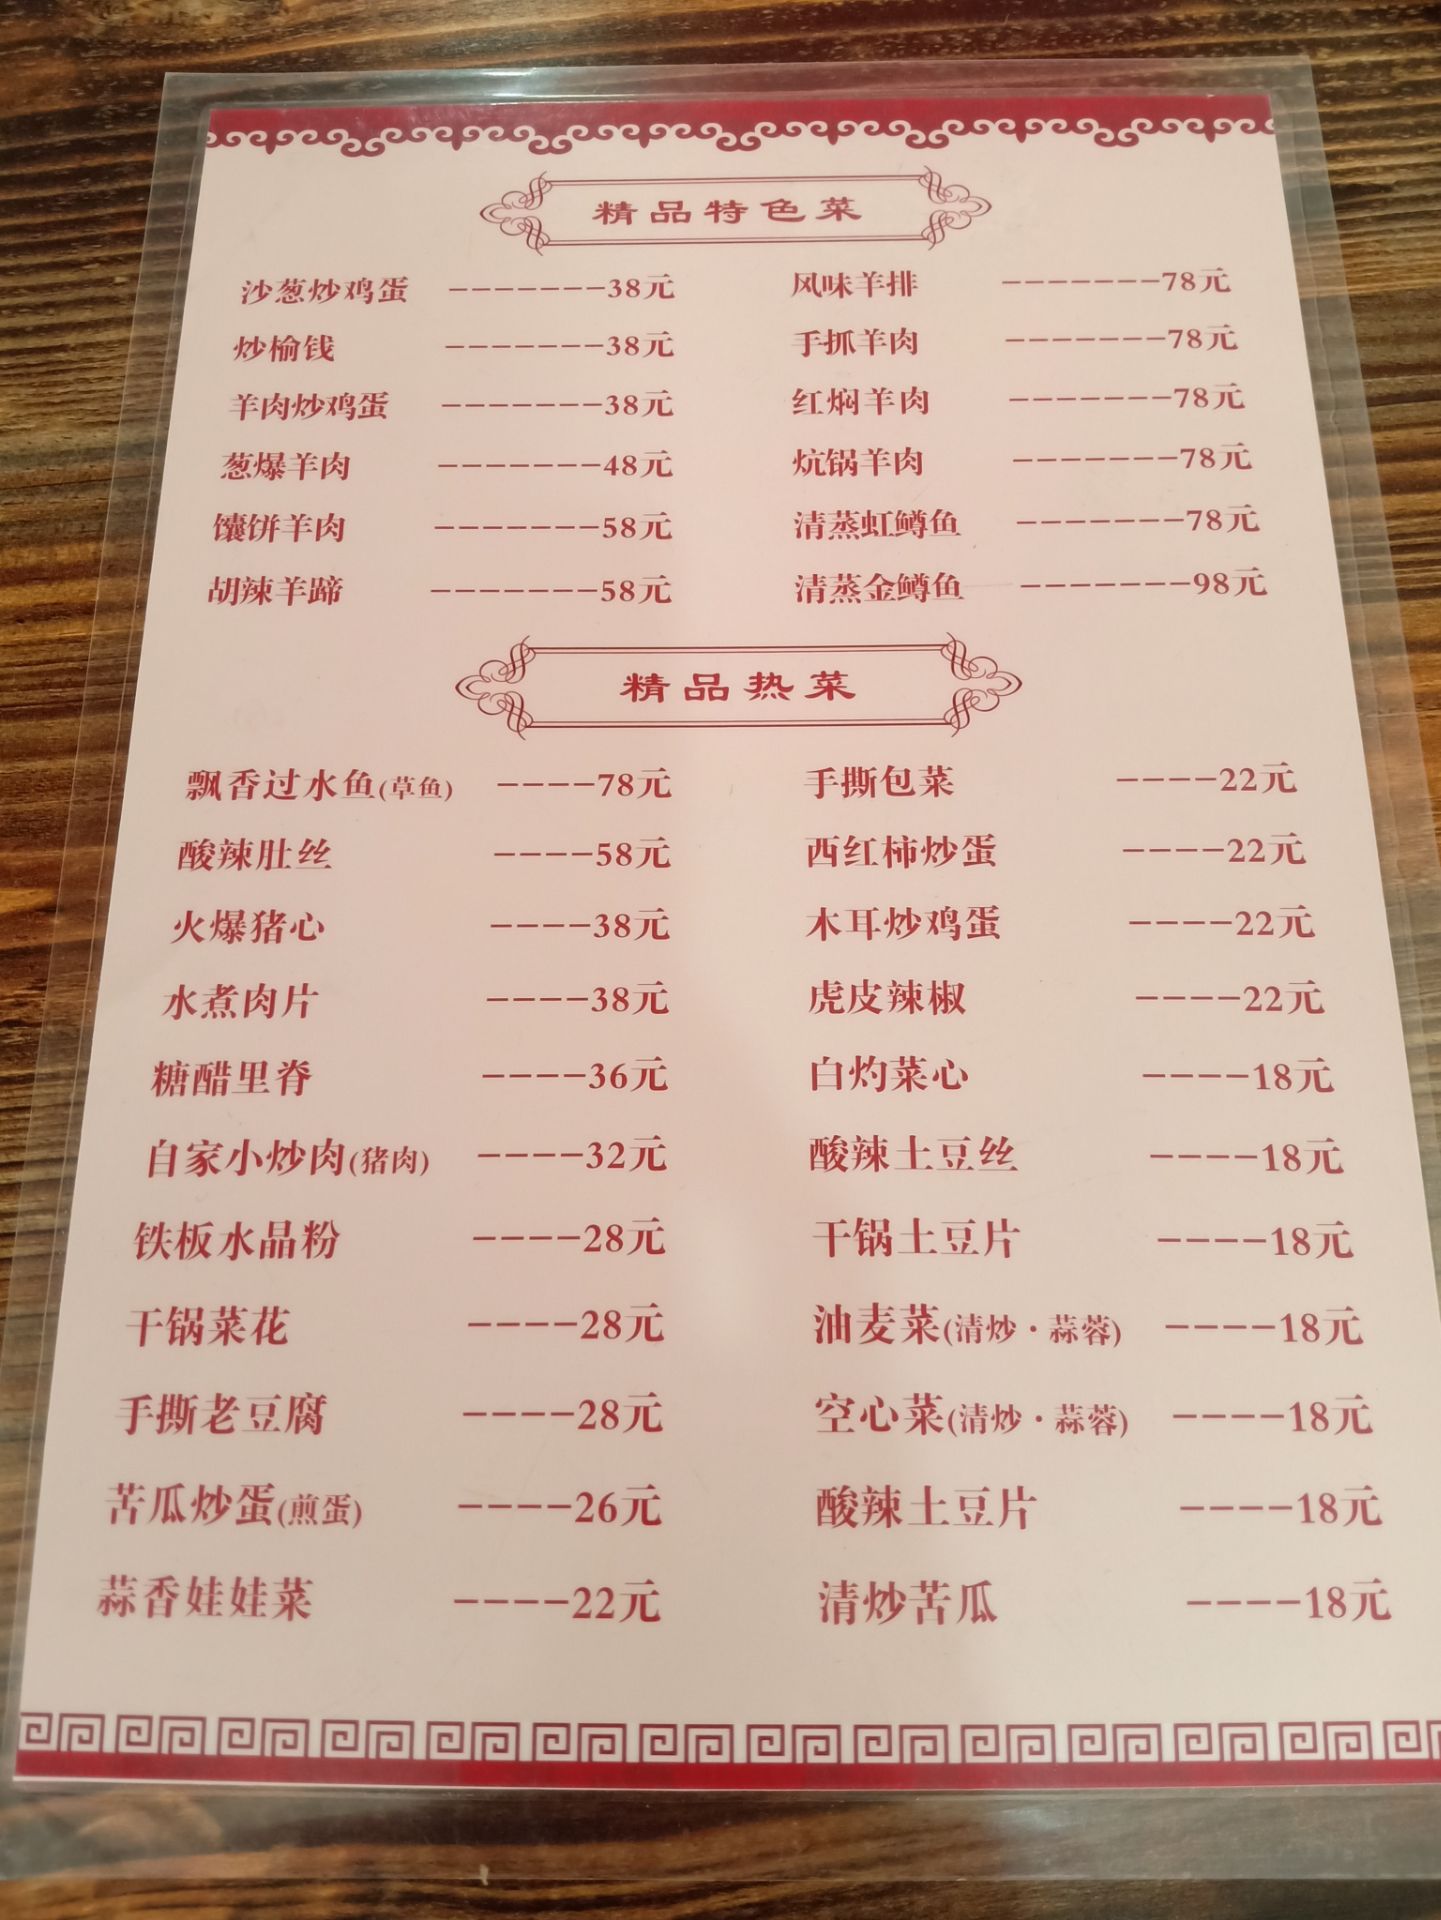 精品特色菜
沙葱炒鸡蛋 -------38元 风味羊排 -------78元
炒榆钱 -------38元 手抓羊肉 -------78元
羊肉炒鸡蛋 -------38元 红焖羊肉 -------78元
葱爆羊肉 -------48元 炕锅羊肉 -------78元
馕饼羊肉 -------58元 清蒸虹鳟鱼 -------78元
胡辣羊蹄 -------58元 清蒸金鳟鱼 -------98元
精品热菜
飘香过水鱼(草鱼) ----78元 手撕包菜 ----22元
酸辣肚丝 ----58元 西红柿炒蛋 ----22元
火爆猪心 ----38元 木耳炒鸡蛋 ----22元
水煮肉片 ----38元 虎皮辣椒 ----22元
糖醋里脊 ----36元 白灼菜心 ----18元
自家小炒肉(猪肉) ----32元 酸辣土豆丝 ----18元
铁板水晶粉 ----28元 干锅土豆片 ----18元
干锅菜花 ----28元 油麦菜(清炒·蒜蓉) ----18元
手撕老豆腐 ----28元 空心菜(清炒·蒜蓉) ----18元
苦瓜炒蛋(煎蛋) ----26元 酸辣土豆片 ----18元
蒜香娃娃菜 ----22元 清炒苦瓜 ----18元